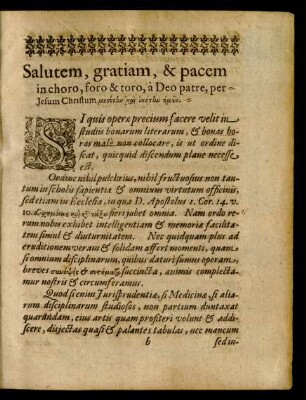 Salutem, gratiam, & pacem
in choro, foro & toro, à Deo patre, per
Jesum Christum μεσίτην καὶ ἱκέτην ἡμῶν.
SI quis operæ precium facere velit in
studiis bonarum literarum, & bonas ho-
ras malè non collocare, is ut ordine di-
scat, quicquid discendum planè necesse
est.
Ordine nihil pulchrius, nihil fructuosius non tan-
tum in scholis sapientiæ & omnium virtutum officinis,
sed etiam in Ecclesia, in qua D. Apostolus 1. Cor. 14. v.
fieri jubet omnia. Nam ordo re-
rum nobis exhibet intelligentiam & memoriæ facilita-
tem simul & diuturnitatem. Nec quidquam plus ad
eruditionem veram & solidam affert momenti, quàm
si omnium disciplinarum, quibus daturi sumus operam,
breves succincta, animis complecta-
mur nostris & circumferamus.
Quod si enim Jurisprudentiæ, si Medicinæ, si alia-
rum disciplinarum studiosos, non partium duntaxat
quarundam, ejus artis quam profiteri volunt & addi-
scere, disjectas quasi & palantes tabulas, nec mancum
b
sed in-